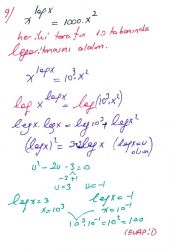 9/ x^logx = 1000.x²
her iki tarafın 10 tabanında
logaritmasını alalım.
x^logx = 10³.x²
log x^logx = log(10³.x²)
logx.logx = log10³ + logx²
(logx)² = 3+2logx (logx=u olsun)
u² - 2u - 3 = 0
-3 +1
u=3 u=-1
logx=3 logx=-1
x=10³ x=10⁻¹
10³.10⁻¹ = 10² = 100
(CEVAP:D)